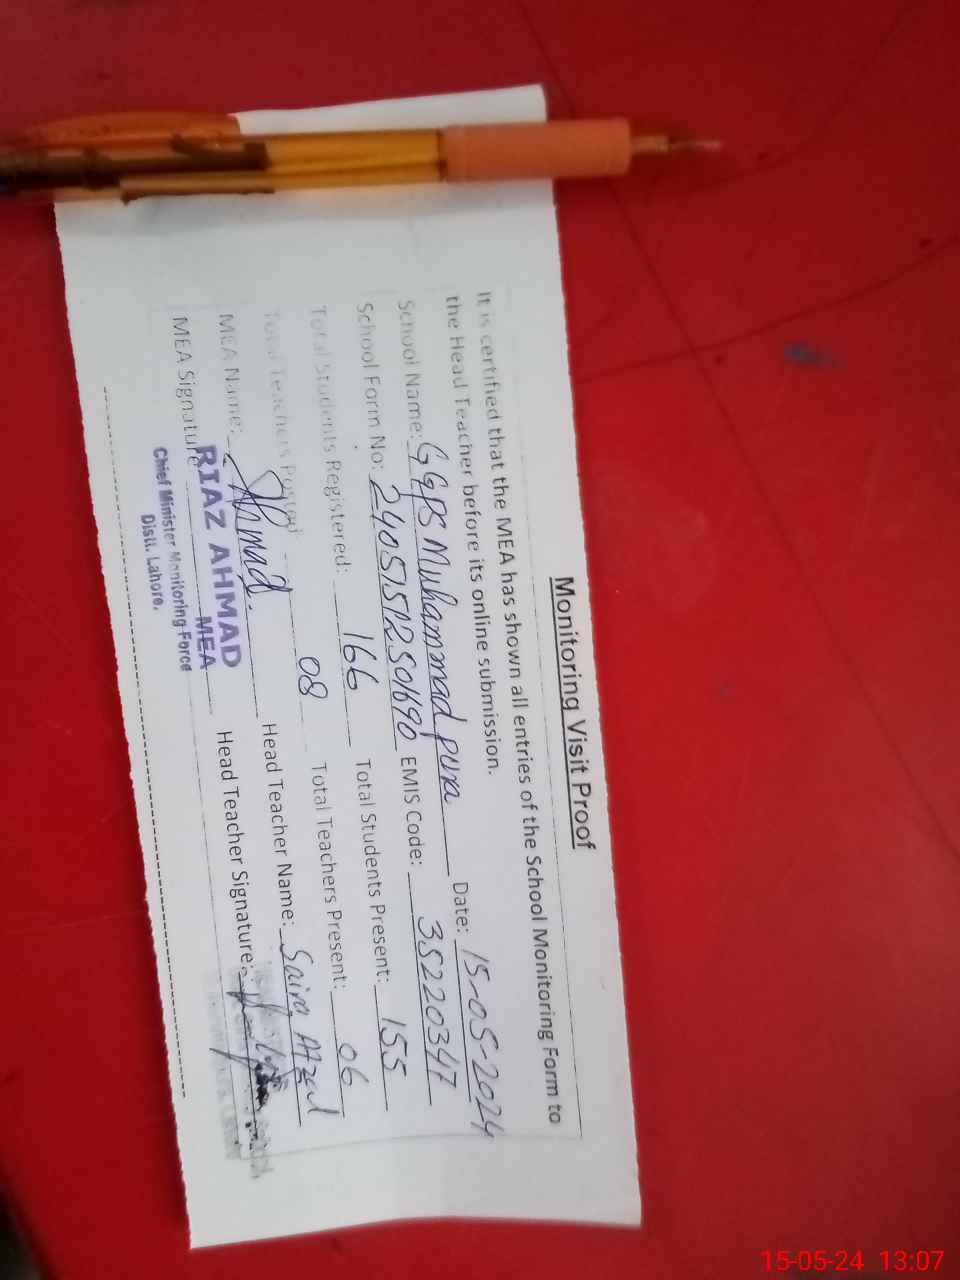 Monitoring Visit Proof
It is certified that the MEA has shown all entries of the School Monitoring Form to
the Head Teacher before its online submission.
School Name: GGPS Muhammad pura Date: 15-05-2024
School Form No: 24051512501690 EMIS Code: 35220347
Total Students Registered: 166 Total Students Present: 155
Total Teachers Posted 08 Total Teachers Present: 06
MEA Name: Ahmad. Head Teacher Name: Saira Afzal
MEA Signature Head Teacher Signature:
RIAZ AHMAD
MEA
Chief Minister Monitoring Force
Distt. Lahore.
15-05-24 13:07